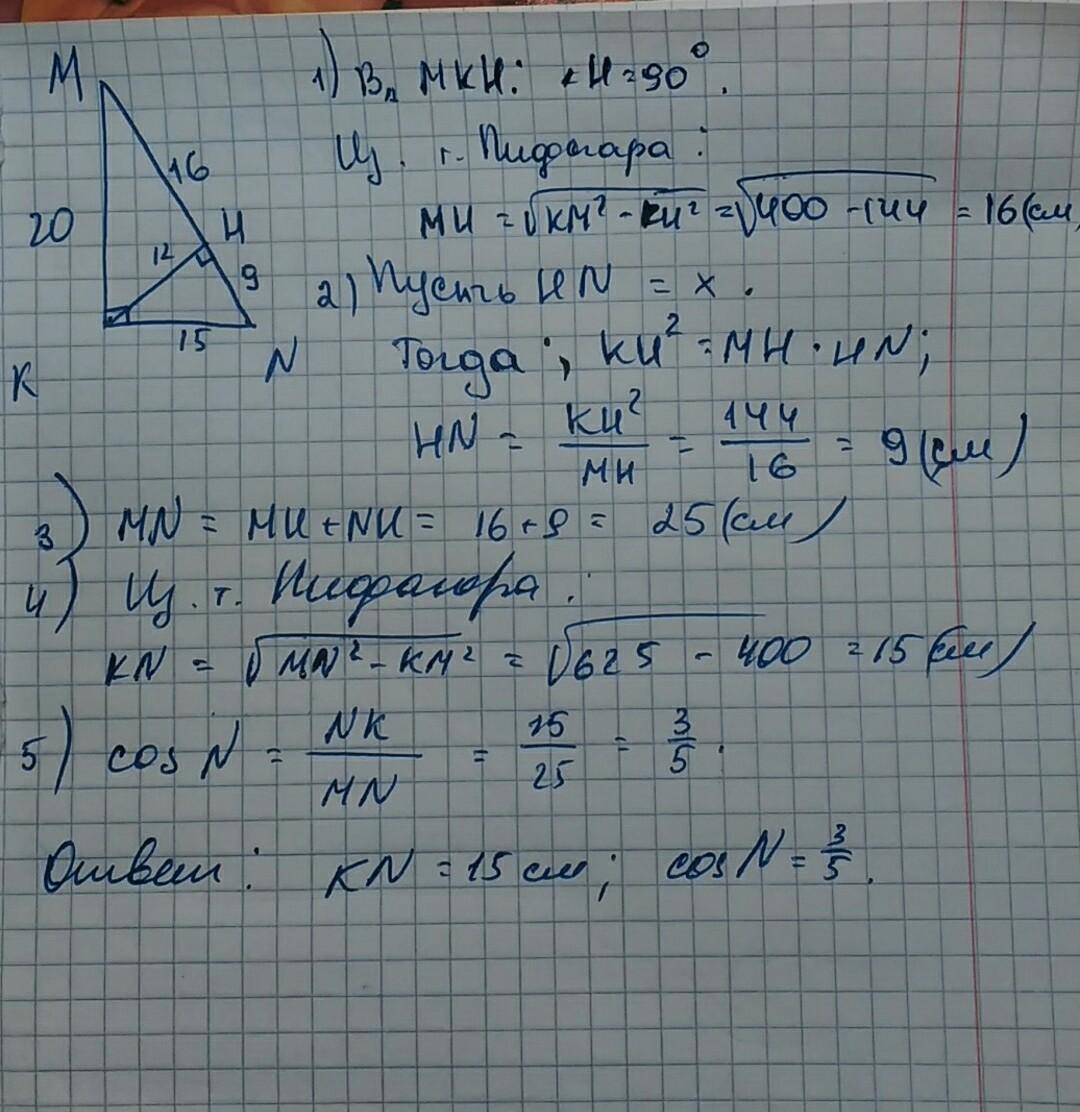 M
16
20
12
H
9
15
K
N
1) В △ MKH: ∠H=90°.
Из. т. Пифагора:
MH = √KM² - KH² = √400 - 144 = 16 (см)
2) Пусть HN = x.
Тогда; KH² = MH · HN;
HN = KH²/MH = 144/16 = 9 (см)
3) MN = MH + NH = 16 + 9 = 25 (см)
4) Из. т. Пифагора:
KN = √MN² - KM² = √625 - 400 = 15 (см)
5) cos N = NK/MN = 15/25 = 3/5.
Ответ: KN = 15 см; cos N = 3/5.